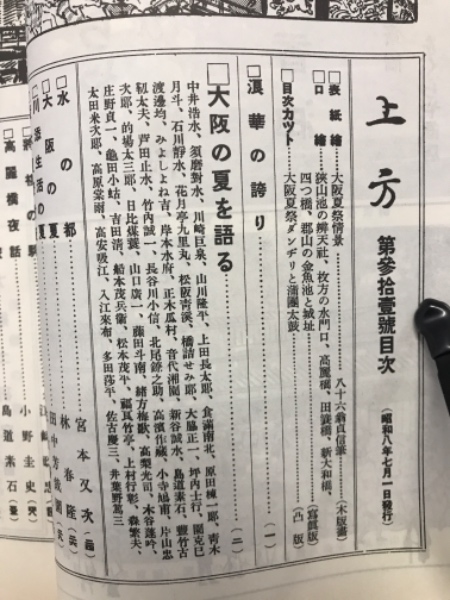 上方 第参拾壹號目次 (昭和八年七月一日發行)
□表紙繪…大阪夏祭情景…八十六翁貞信筆(木版畫)
□口繪…狹山池の辨天社、枚方の水門口、高麗橋、田簑橋、新大和橋、
四つ橋、郡山の金魚池と城址(寫眞版)
□目次カット…大阪夏祭ダンヂリと蒲團太鼓(凸版)
□浪華の誇り…(一)
□大阪の夏を語る…(二)
中井浩水、須磨對水、川崎巨泉、山川隆平、上田長太郎、食滿南北、原田棟一郎、靑木
月斗、石川靜水、花月亭九里丸、松阪靑溪、橋詰せみ郎、大脇正一、坪内士行、
渡邊均、みよしよね吉、岸本水府、正木瓜村、音代湘園、新谷誠水、島道素石、豐竹古
靭太夫、芦田止水、竹内誠一、長谷川小信、北尾鐐之助、高濱作藏、小寺鳩甫、片山忠
次郎、的場太三郎、日比煤蓑、山口廣一、藤田斗南、緒方梅獻、高梨光司、木谷蓬吟、
庄野貞一、龜田小蛄、吉田淸、船本茂兵衞、松本茂平、福良竹亭、上村行彰、森繁夫、
太田米次郎、高原蘂雨、高安吸江、入江來布、多田莎平、佐古慶三、
□水の都…宮本又次
□大阪の夏…林春隆
田中
小野圭史
□高麗橋夜話…島道素石